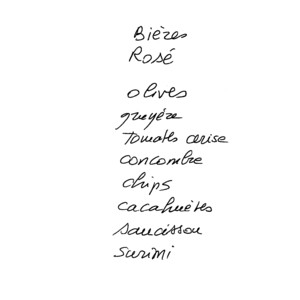 Bières
Rosé
olives
gruyère
tomates cerise
concombre
chips
cacahuètes
saucisson
surimi